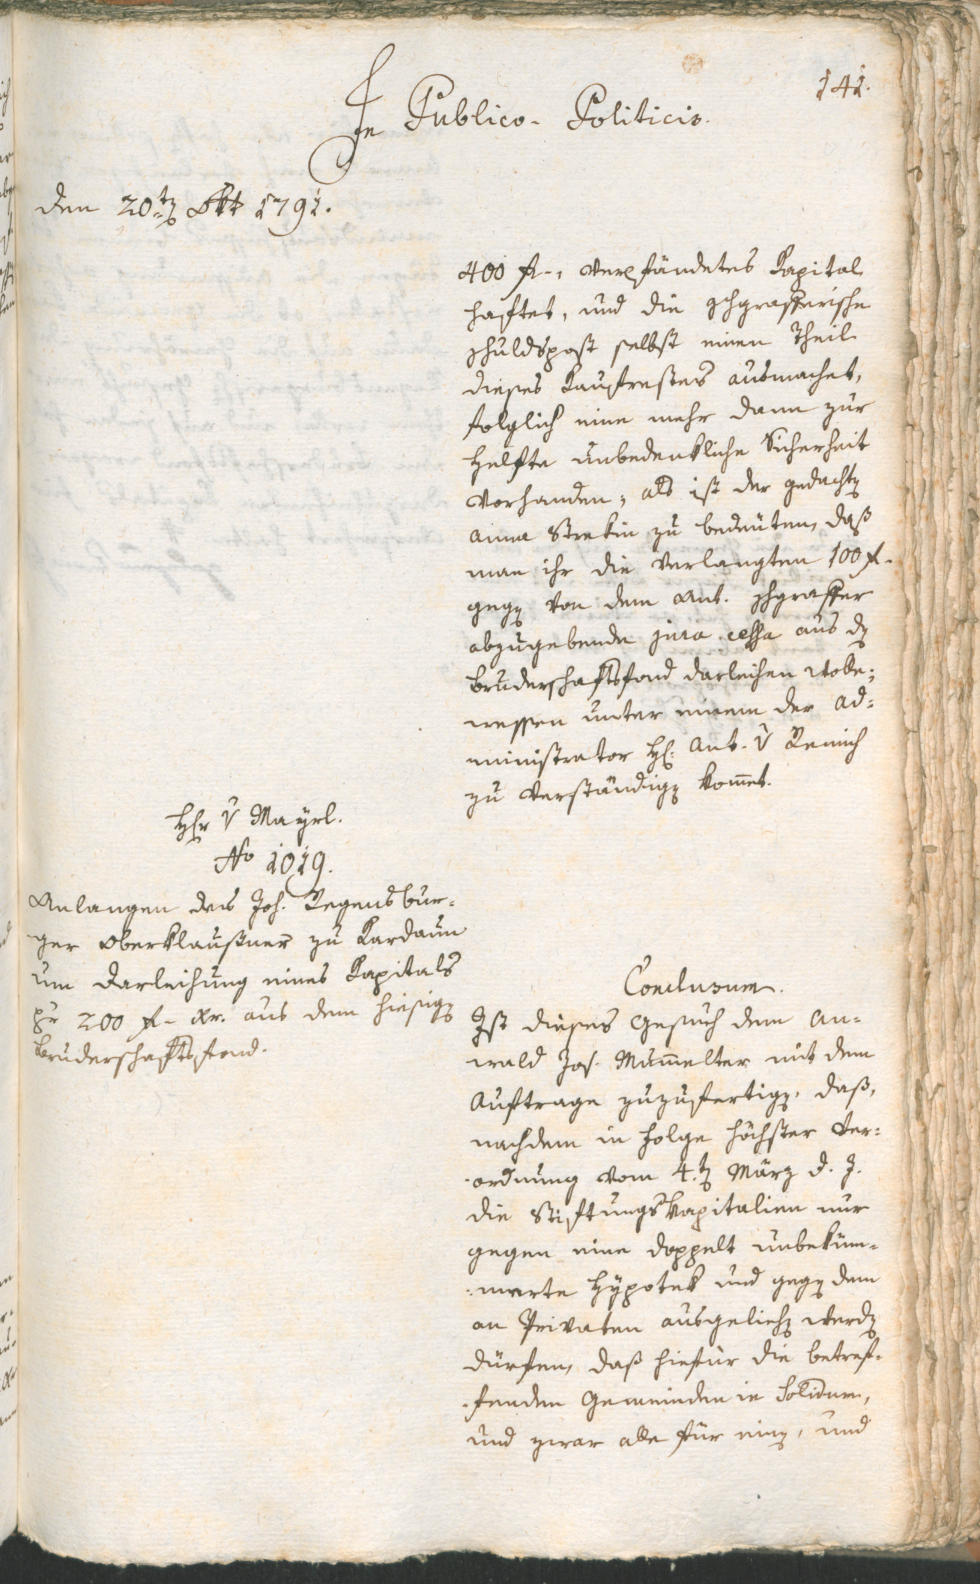 141.
In Publico-Politicis.
den 20ten Okt 1791.
400 f-, verpfändetes Kapital
haftet, und die Schgrafferische
Schuldspost selbst einen Theil
dieses Kaufrestes ausmachet,
folglich eine mehr dann zur
Helfte unbedenkliche Sicherheit
vorhanden, als ist der gedachten
Anna Strekin zu bedeuten, daß
man ihr die verlangten 100 f-
gegen von dem Ant. Schgraffer
abzugebende jura cessa aus dem
Bruderschaftsfond darleihen wolle;
wessen unter einem der Ad=
ministrator H: Ant. v Remich
zu verständigen kommet.
Hr v Mayrl.
No 1019.
Anlangen des Joh. Regensbur=
ger Oberklaußner zu Kardaun
um Darleihung eines Kapitals
pr 200 f- xr. aus dem hiesigen
Bruderschaftsfond.
Conclusum.
Ist dieses Gesuch dem An=
wald Jos. Mumelter mit dem
Auftrage zuzufertigen, daß,
nachdem in Folge höchster Ver=
ordnung vom 4.ten März d. J.
die Stiftungskapitalien nur
gegen eine doppelt unbeküm=
merte Hÿpotek und gegen dem
an Privaten ausgeliehen werden
dürfen, daß hiefür die betref=
fenden Gemeinden in Solidum,
und zwar alle für einen, und